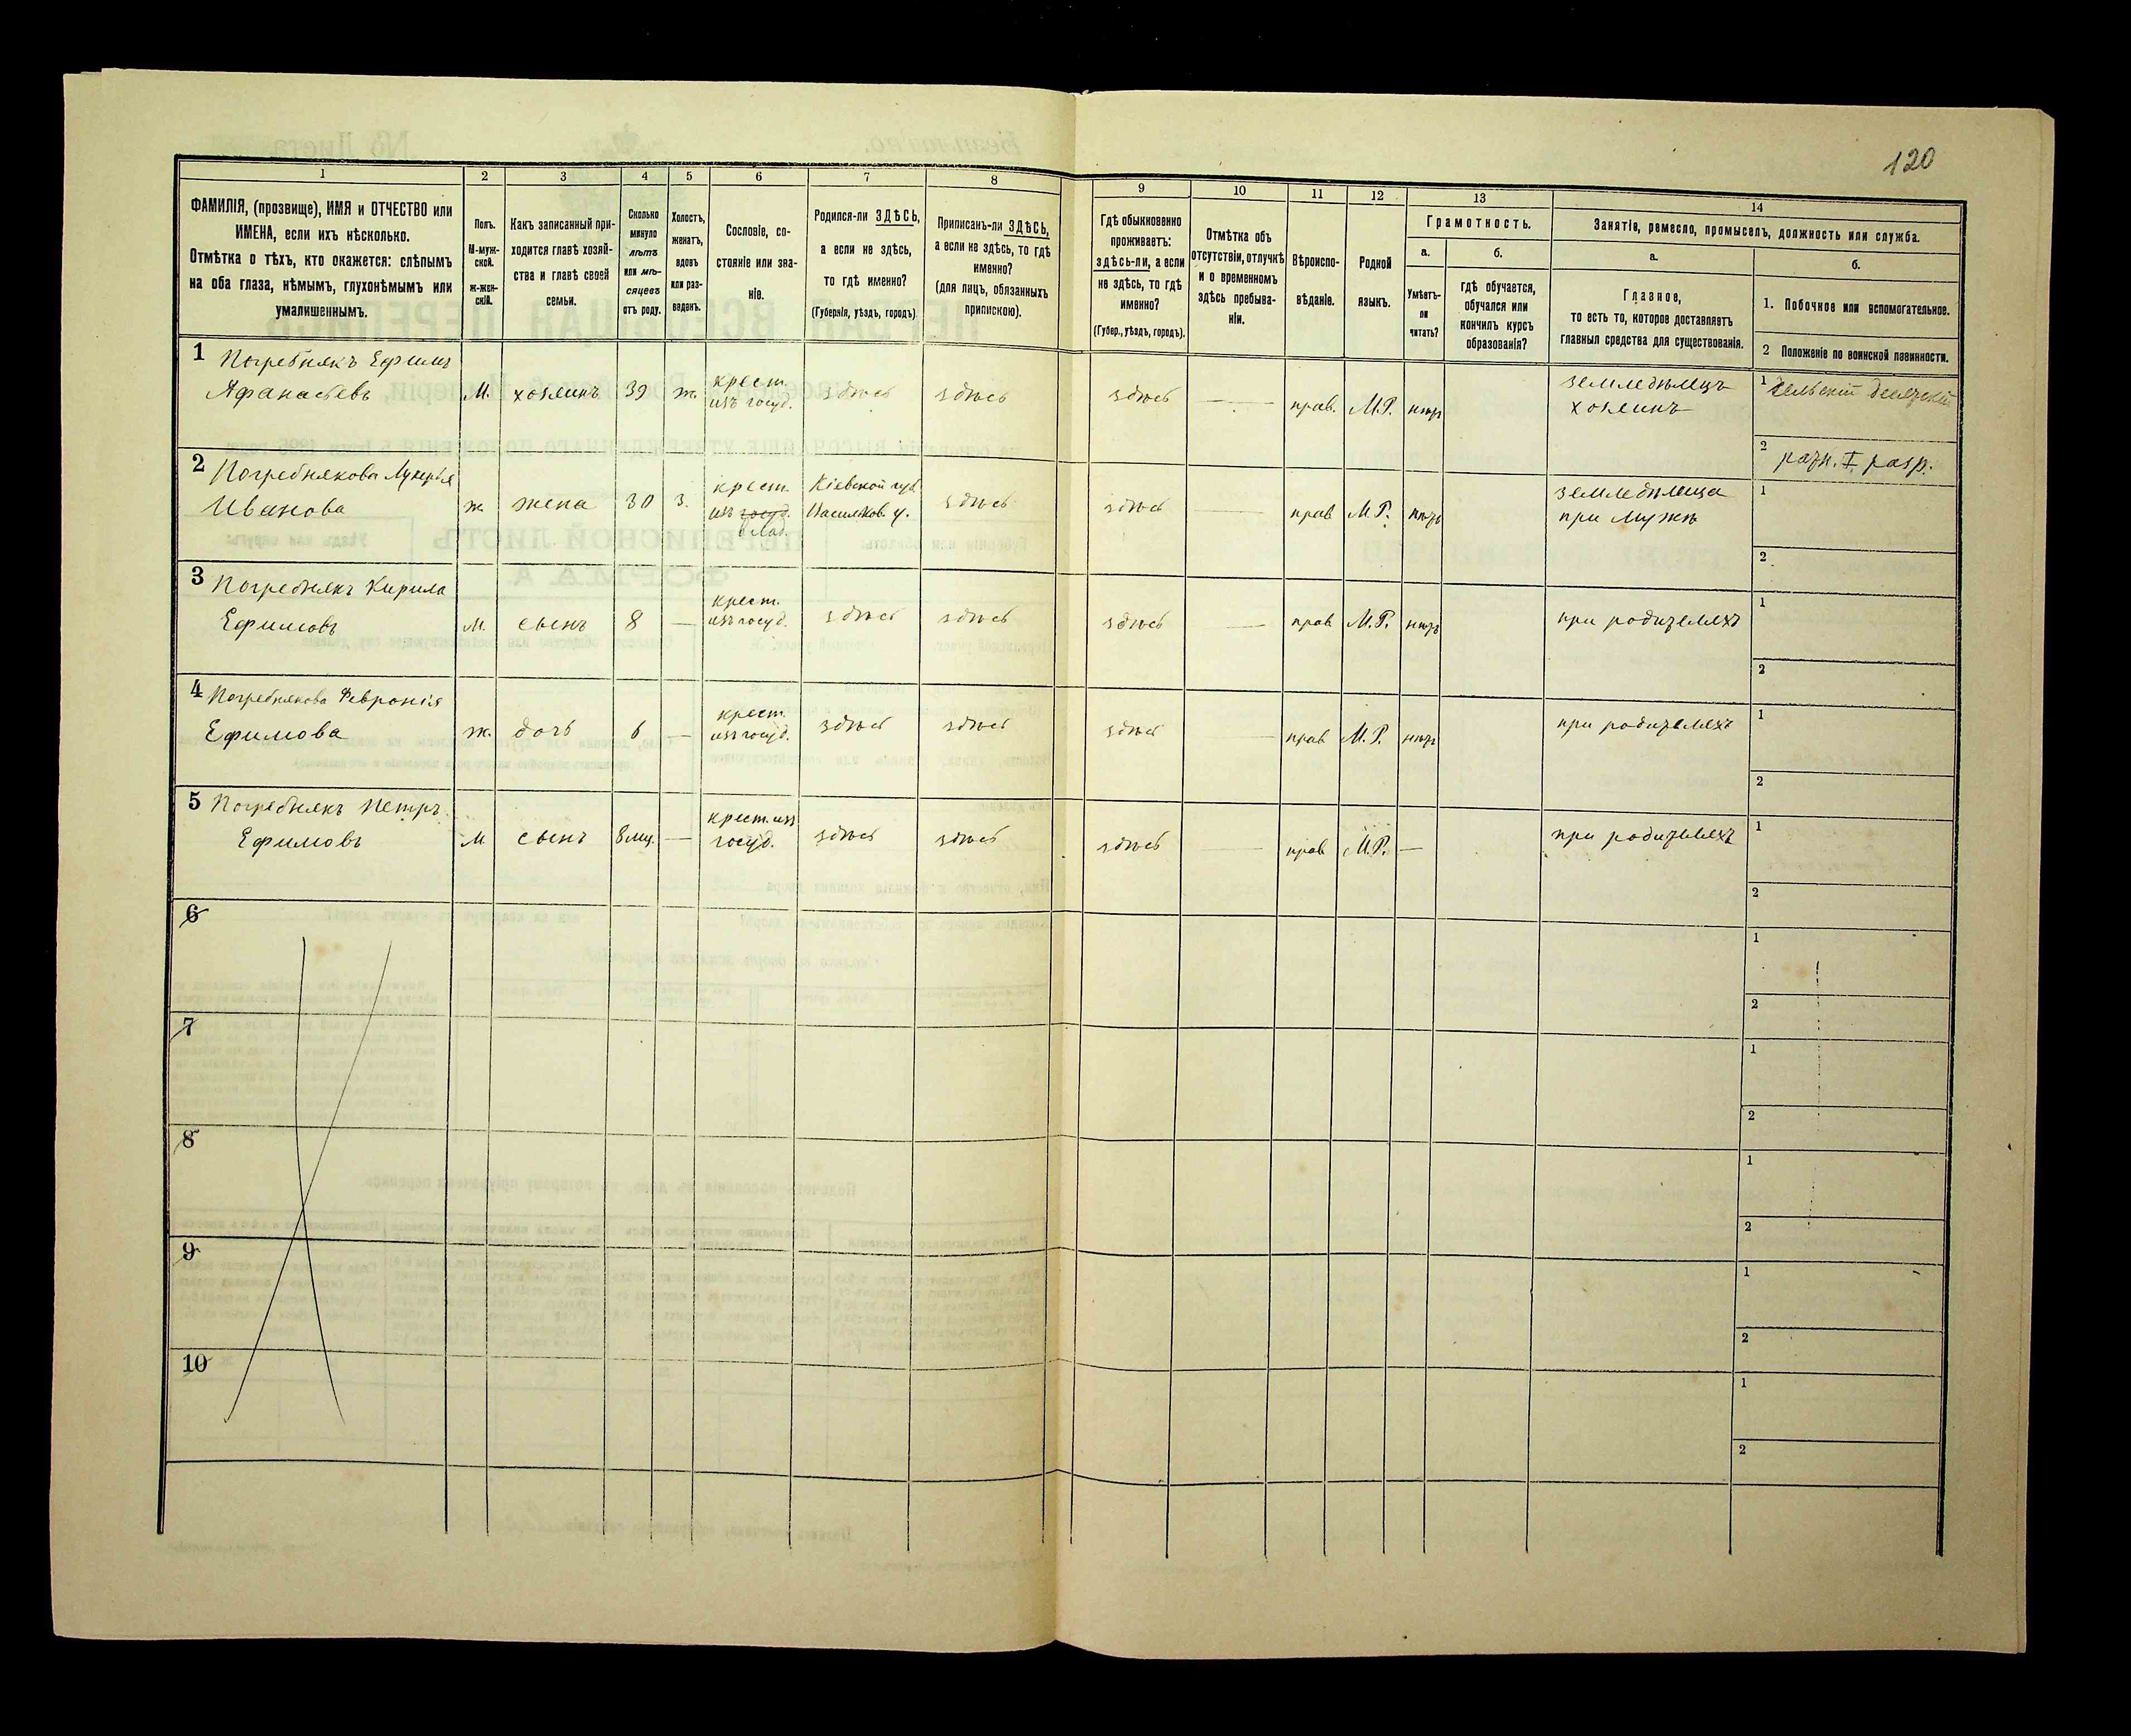 120
1 2 3 4 5 6 7 8 9 10 11 12 13 14
ФАМИЛІЯ, (прозвище), ИМЯ и ОТЧЕСТВО или
ИМЕНА, если ихъ нѣсколько.
Отмѣтка о тѣхъ, кто окажется: слѣпымъ
на оба глаза, нѣмымъ, глухонѣмымъ или
умалишеннымъ.
Полъ.
М-муж-
ской.
ж-жен-
скій.
Какъ записанный при-
ходится главѣ хозяй-
ства и главѣ своей
семьи.
Сколько
минуло
лѣтъ
или мѣ-
сяцевъ
отъ роду.
Холостъ,
женатъ,
вдовъ
или раз-
веденъ.
Сословіе, со-
стояніе или зва-
ніе.
Родился-ли ЗДѢСЬ,
а если не здѣсь,
то гдѣ именно?
(Губернія, уѣздъ, городъ).
Приписанъ-ли ЗДѢСЬ,
а если не здѣсь, то гдѣ
именно?
(для лицъ, обязанныхъ
припискою).
Гдѣ обыкновенно
проживаетъ:
здѣсь-ли, а если
не здѣсь, то гдѣ
именно?
(Губер., уѣздъ, городъ).
Отмѣтка объ
отсутствіи, отлучкѣ
и о временномъ
здѣсь пребыва-
ніи.
Вѣроиспо-
вѣданіе.
Родной
языкъ.
Грамотность.
а.
Умѣетъ-
ли
читать?
б.
гдѣ обучается,
обучался или
кончилъ курсъ
образованія?
Занятіе, ремесло, промыселъ, должность или служба.
а.
Главное,
то есть то, которое доставляетъ
главныя средства для существованія.
б.
1. Побочное или вспомогательное.
2 Положеніе по воинской повинности.
1 Погребнякъ Ефимъ
Афанасьевъ
М. хозяинъ 39 ж. крест.
изъ госуд.
здѣсь здѣсь здѣсь — прав. М.Р. нѣтъ
земледѣлецъ
хозяинъ
1 сельскій
2 ратн. I разр.
2 Погребнякова Лукерья
Иванова
ж. жена 30 з. крест.
изъ госуд.
влад.
Кіевской губ.
Васильков. у.
здѣсь здѣсь — прав М.Р. нѣтъ
земледѣлица
при мужѣ
1
2
3 Погребнякъ Кирила
Ефимовъ
М. сынъ 8 — крест.
изъ госуд.
здѣсь здѣсь здѣсь — прав М.Р. нѣтъ при родителяхъ
1
2
4 Погребнякова Февронія
Ефимова
ж. дочь 6 — крест.
изъ госуд.
здѣсь здѣсь здѣсь — прав М.Р. нѣтъ при родителяхъ
1
2
5 Погребнякъ Петръ
Ефимовъ
М сынъ 8 мц. — крест. изъ
госуд.
здѣсь здѣсь здѣсь — прав М.Р. — при родителяхъ
1
2
6
1
2
7
1
2
8
1
2
9
1
2
10
1
2